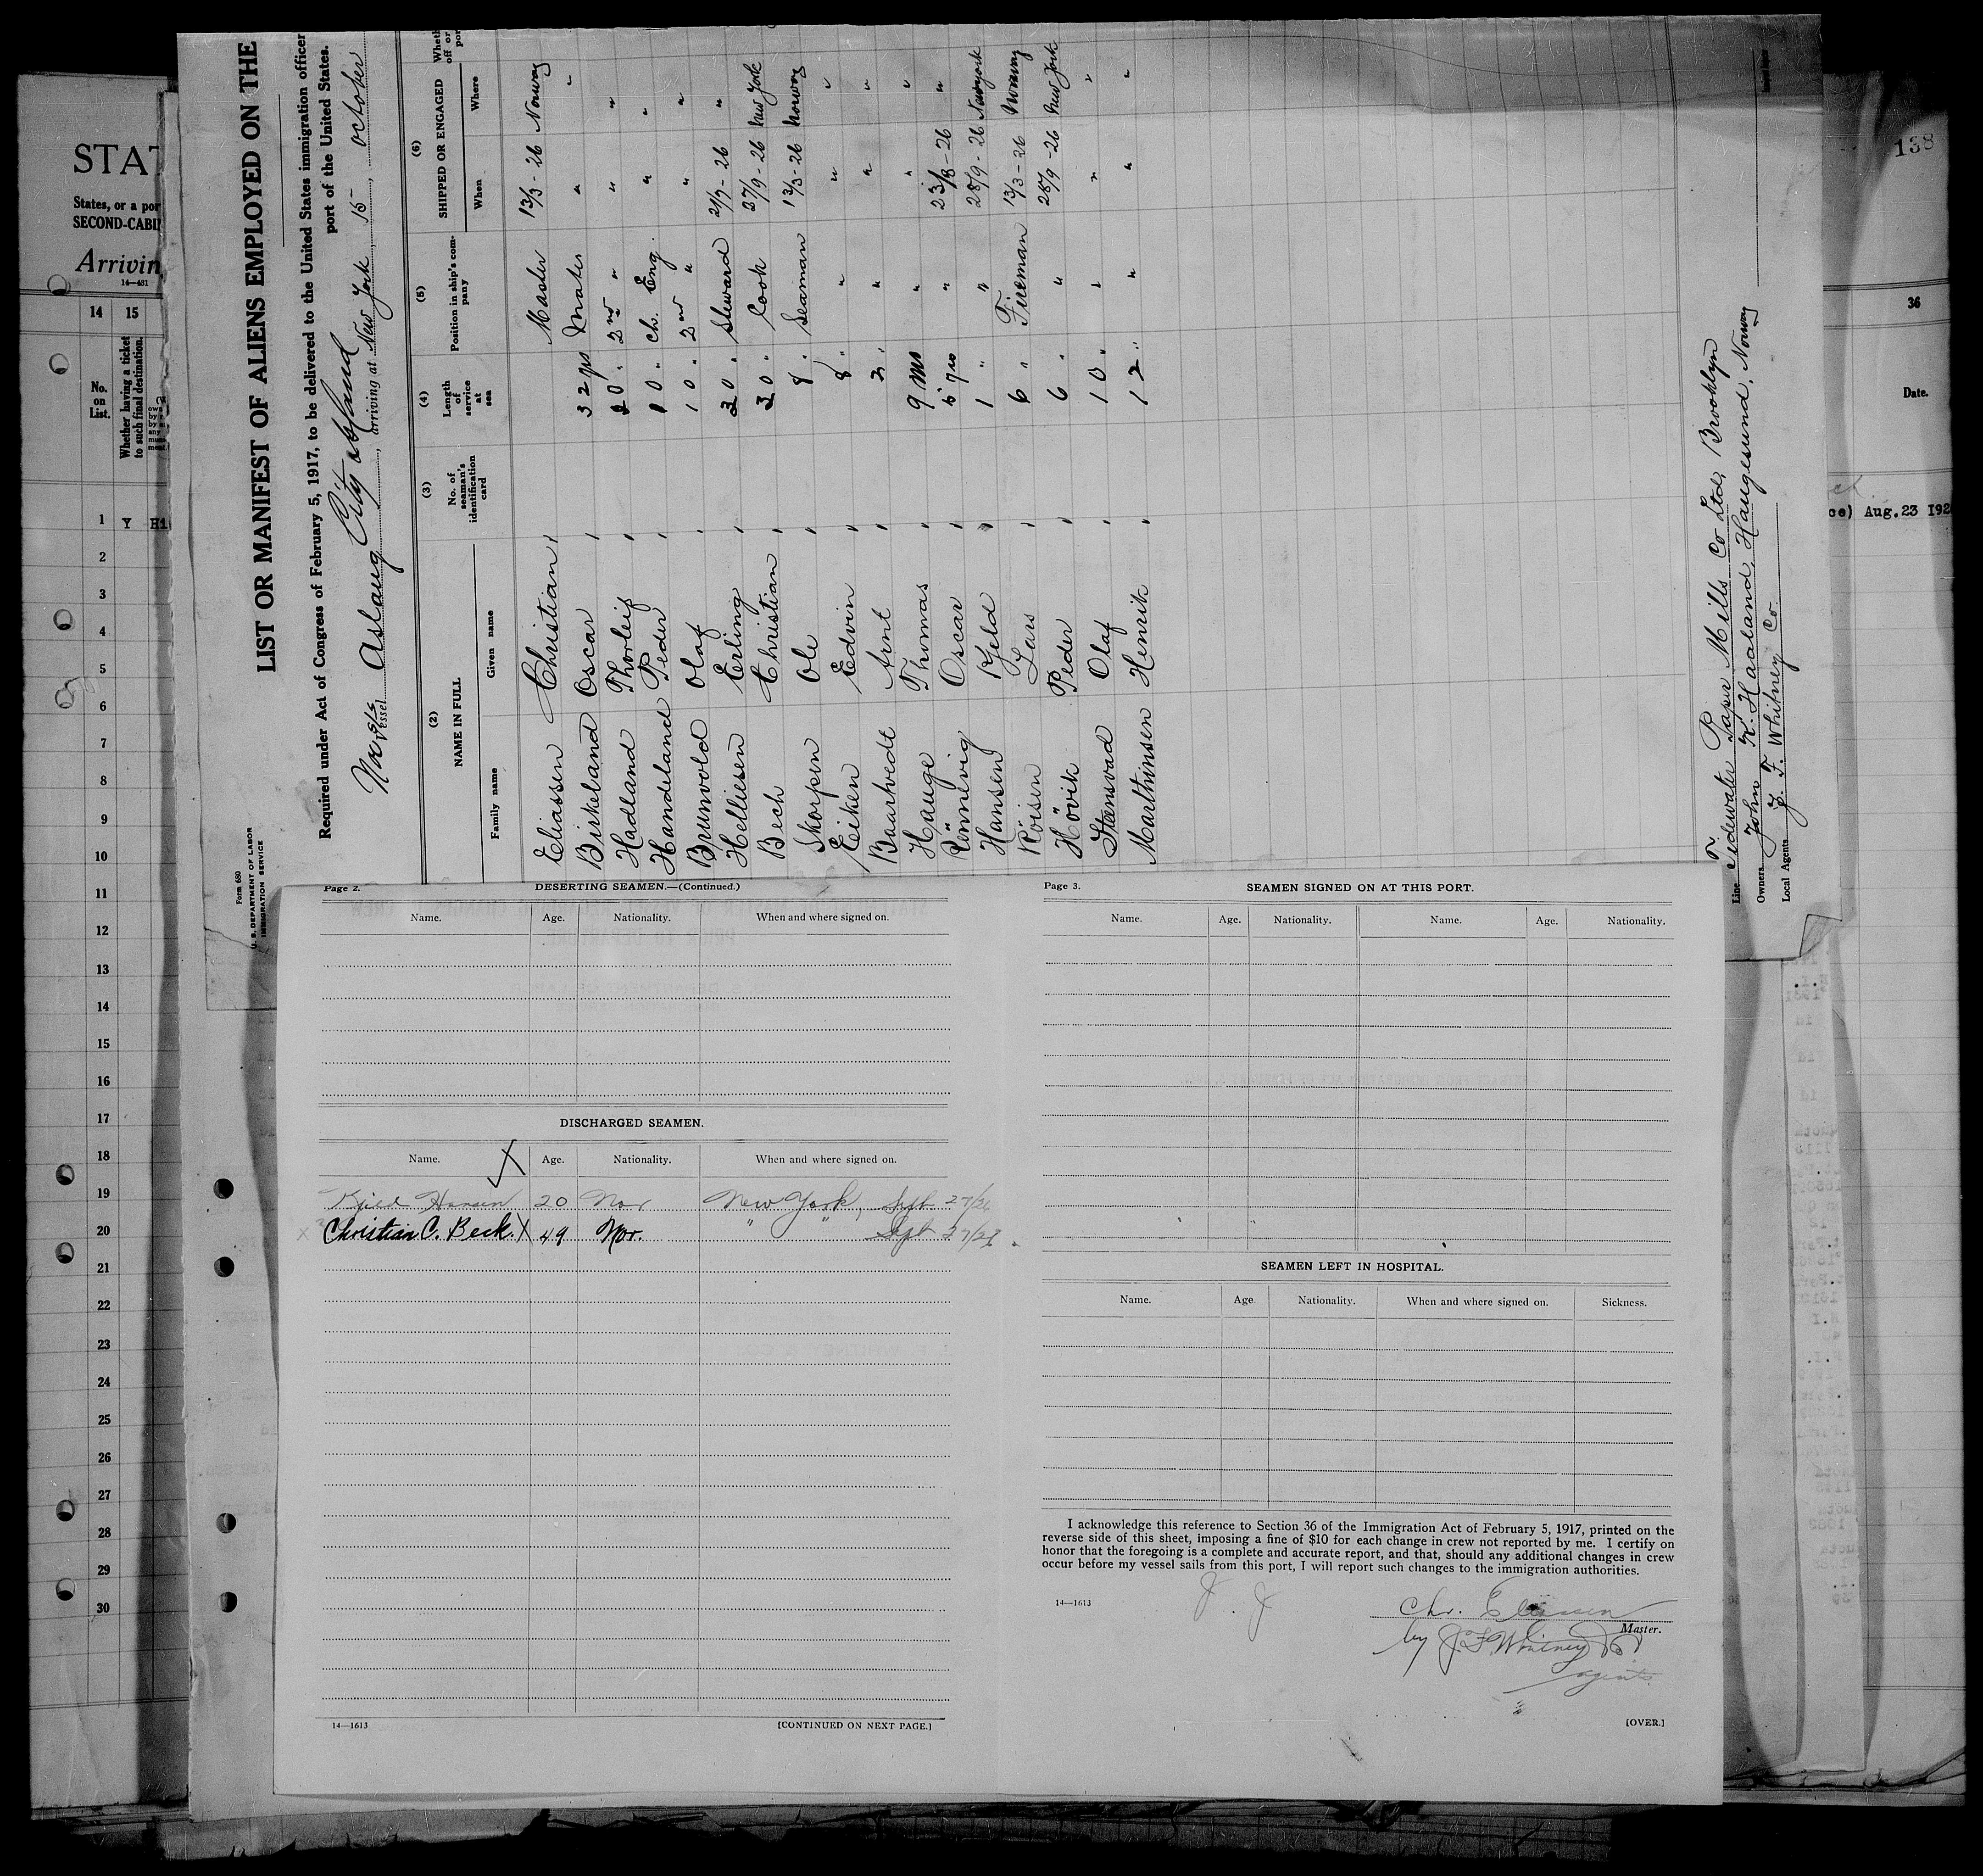 138
STAT
States, or a por
SECOND-CABI
Arrivin
14—481
14 15
No. on List.
Whether having a ticket to such final destination.
36
Date.
1 Y Hi
ce) Aug. 23 192
2
3
4
5
6
7
8
9
10
11
12
13
14
15
16
17
18
19
20
21
22
23
24
25
26
27
28
29
30
Form 680
U. S. DEPARTMENT OF LABOR
IMMIGRATION SERVICE
LIST OR MANIFEST OF ALIENS EMPLOYED ON THE
Required under Act of Congress of February 5, 1917, to be delivered to the United States immigration officer
port of the United States.
Nor s/s Vessel Aslaug City Island, arriving at New York, 15, October
(2) (3) (4) (5) (6)
NAME IN FULL
Family name Given name
No. of seaman's identification card
Length of service at sea
Position in ship's company
SHIPPED OR ENGAGED
When Where
Eliassen Christian Master 13/3-26 Norway
Birkeland Oscar 32 yrs Mates " "
Hadland Thorleif 20 " 2nd " " "
Handeland Peder 10 " Ch. Eng. " "
Brunvold Olaf 10 " 2nd " " "
Helliesen Erling 30 " Steward 21/9-26 "
Bech Christian 30 " Cook 27/9-26 New York
Skorpen Ole 8 " Seaman 13/3-26 Norway
Eiken Edvin 8 " " " "
Baarhvedt Arnt 2 " " " "
Hauge Thomas 9 ms " " "
Rönnevig Oscar 5 yrs " 23/8-26 "
Hansen Kjeld 1 " " 28/9-26 Newyork
Röisen Lars 6 " Fireman 13/3-26 Norway
Hövik Peder 6 " " 28/9-26 New York
Stensvad Olaf 10 " " " "
Marthinsen Henrik 12 " " " "
Line Tidewater Paper Mills Co Ltd, Brooklyn
Owners John K. Haaland, Haugesund, Norway
Local Agents J. F. Whitney Co.
Page 2. DESERTING SEAMEN.—(Continued.)
Name. Age. Nationality. When and where signed on.
DISCHARGED SEAMEN.
Name. Age. Nationality. When and where signed on.
Kjeld Hansen 20 Nor New York, Sept 27/26
Christian C. Beck. 49 Nor. " " Sept 27/26
14—1613 [CONTINUED ON NEXT PAGE.]
Page 3. SEAMEN SIGNED ON AT THIS PORT.
Name. Age. Nationality. Name. Age. Nationality.
SEAMEN LEFT IN HOSPITAL.
Name. Age Nationality. When and where signed on. Sickness.
I acknowledge this reference to Section 36 of the Immigration Act of February 5, 1917, printed on the
reverse side of this sheet, imposing a fine of $10 for each change in crew not reported by me. I certify on
honor that the foregoing is a complete and accurate report, and that, should any additional changes in crew
occur before my vessel sails from this port, I will report such changes to the immigration authorities.
14—1613
Chr. Eliassen
Master.
by J. F. Whitney Co
agents
[OVER.]